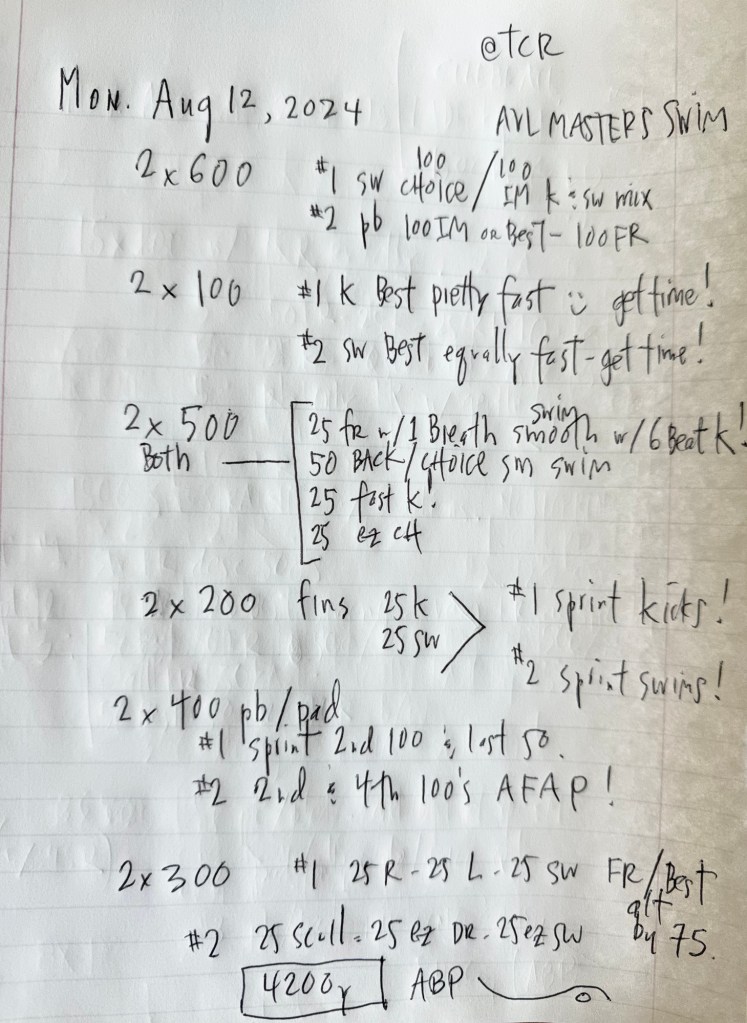 @TCR
Mon. Aug 12, 2024
AVL MASTERS SWIM
2 x 600 #1 sw 100 CHOICE / 100 IM k & sw mix
#2 pb 100 IM or Best - 100 FR
2 x 100 #1 k Best pretty fast :) get time!
#2 sw Best equally fast - get time!
2 x 500 25 fr w/1 Breath swim smooth w/6 Beat k!
Both 50 BACK/CHOICE sm swim
25 fast k!
25 ez CH
2 x 200 fins 25 k #1 sprint kicks!
25 sw #2 sprint swims!
2 x 400 pb/pad
#1 sprint 2nd 100 & last 50.
#2 2nd & 4th 100's AFAP!
2 x 300 #1 25 R - 25 L - 25 SW FR/Best
alt by 75.
#2 25 Scull - 25 ez DR - 25 ez SW
4200y ABP